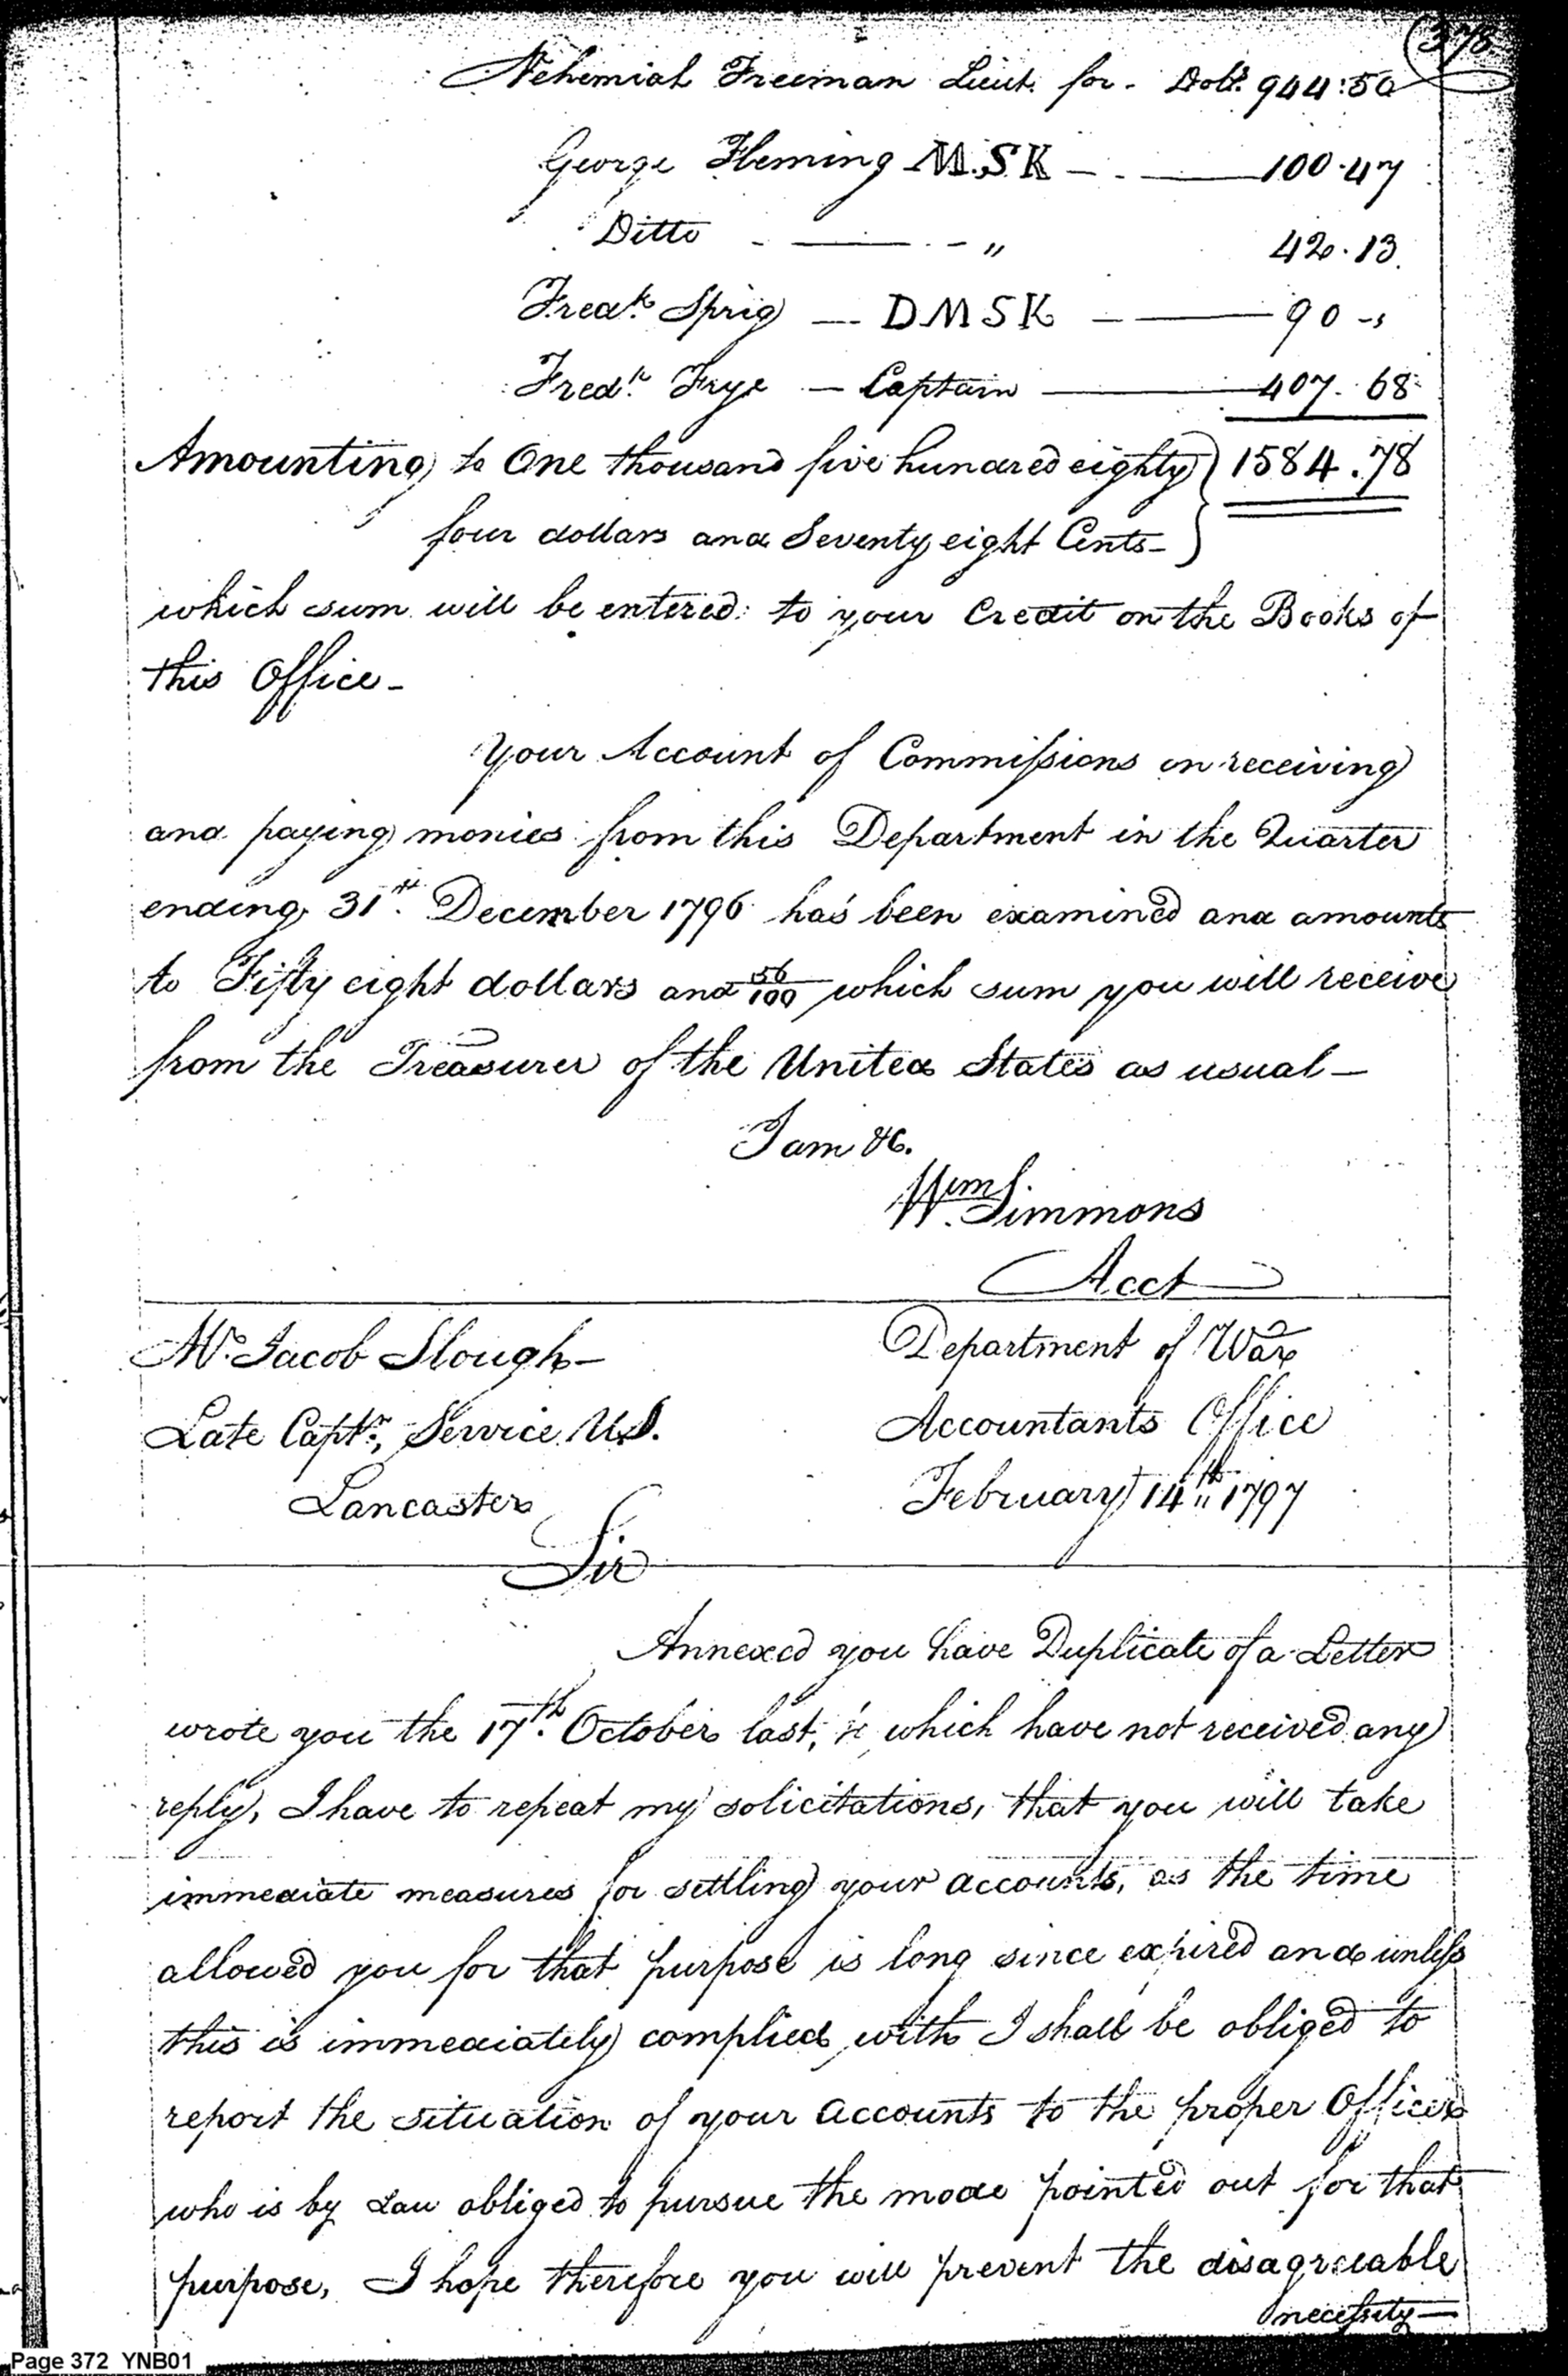 378
Nehemiah Freeman Lieut. for - Dolls. 944:50
George Fleming M.S.K - . - 100.47
Ditto - — . - " 42.13
Fredk. Sprig — DMSK — 90 -"
Fredk. Frye — Captain — 407. 68
Amounting to One thousand five hundred eighty } 1584.78
four dollars and Seventy eight Cents - }
which sum will be entered to your Credit on the Books of
this Office -
Your Account of Commissions on receiving
and paying monies from this Department in the Quarter
ending 31st. December 1796 has been examined and amounts
to Fifty eight dollars and 56/100 which sum you will receive
from the Treasurer of the United States as usual —
I am &c.
Wm. Simmons
Acct
Mr. Jacob Slough —
Department of War
Late Captn., Service U.S.
Accountants Office
Lancaster
February 14th 1797
Sir
Annexed you have Duplicate of a Letter
wrote you the 17th. October last, to which have not received any
reply, I have to repeat my solicitations, that you will take
immediate measures for settling your accounts, as the time
allowed you for that purpose is long since expired and unless
this is immediately complied with I shall be obliged to
report the situation of your accounts to the proper Officer
who is by Law obliged to pursue the mode pointed out for that
purpose, I hope therefore you will prevent the disagreeable
necessity —
Page 372 YNB01